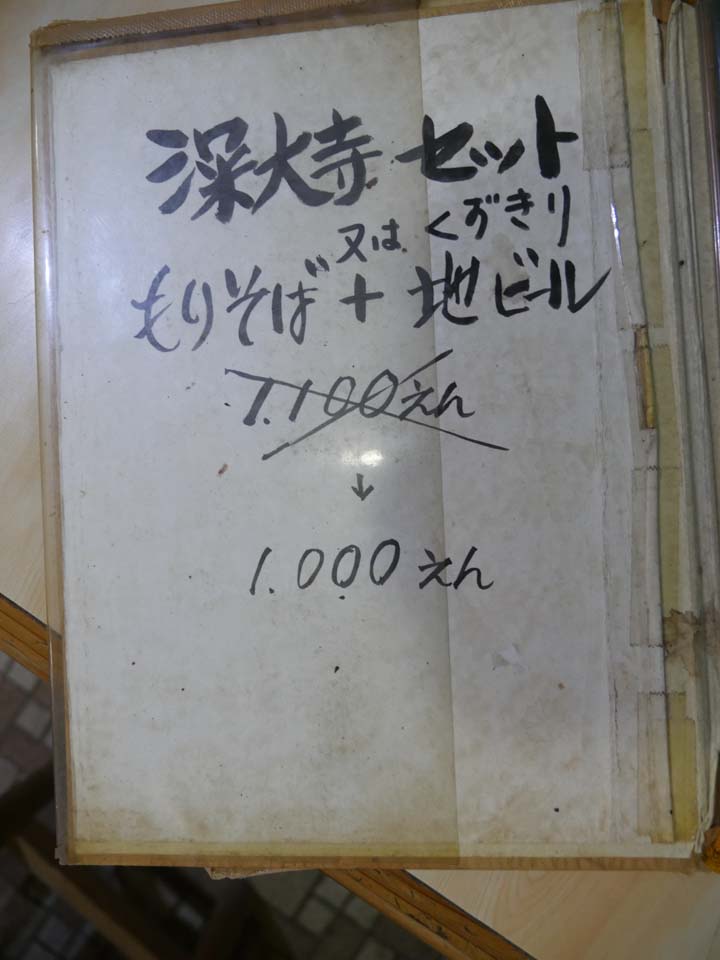 深大寺 セット
又は くずきり
もりそば + 地ビール
1.100えん
↓
1.000えん